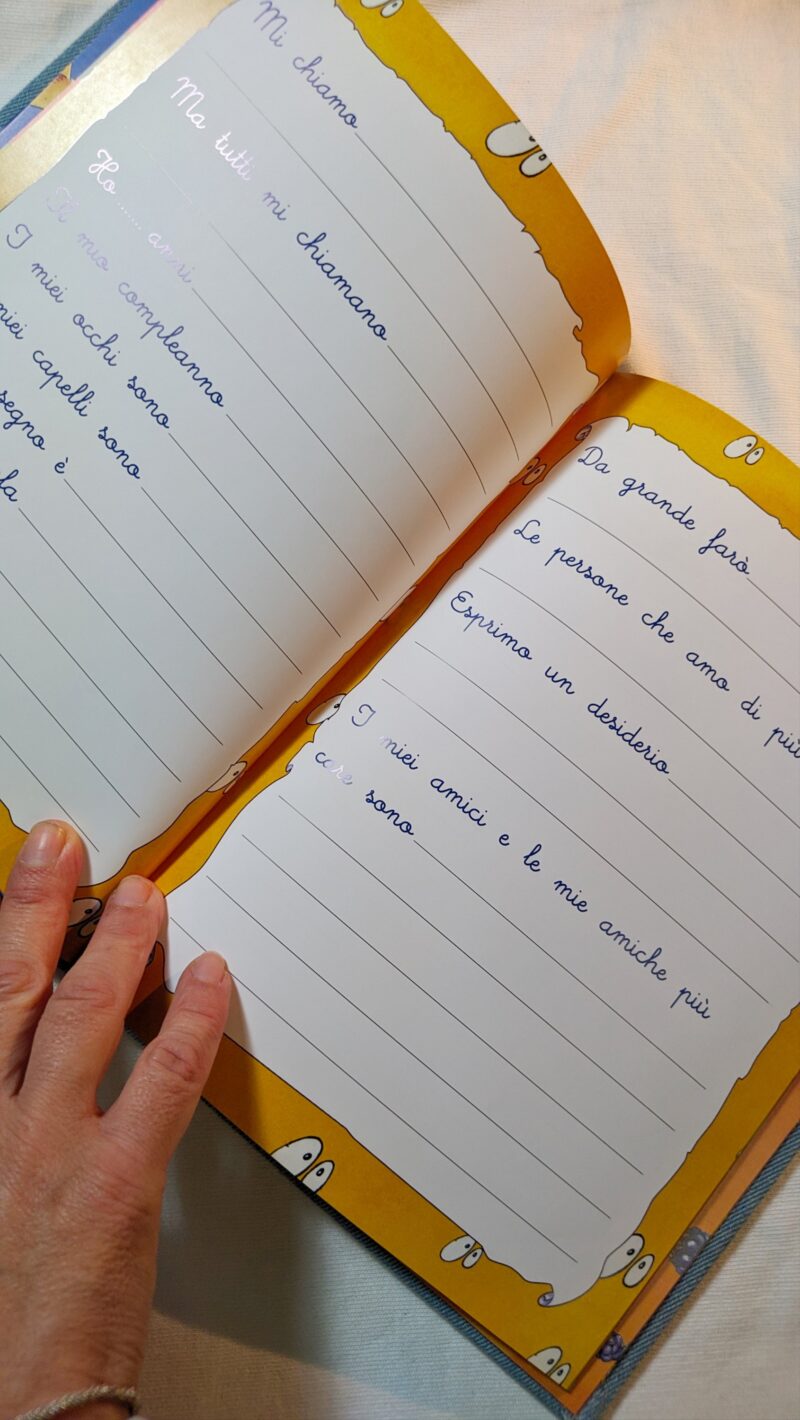 Mi chiamo
Ma tutti mi chiamano
Ho ...... anni
Il mio compleanno
I miei occhi sono
miei capelli sono
segno è
la
Da grande farò
Le persone che amo di più
Esprimo un desiderio
I miei amici e le mie amiche più
care sono